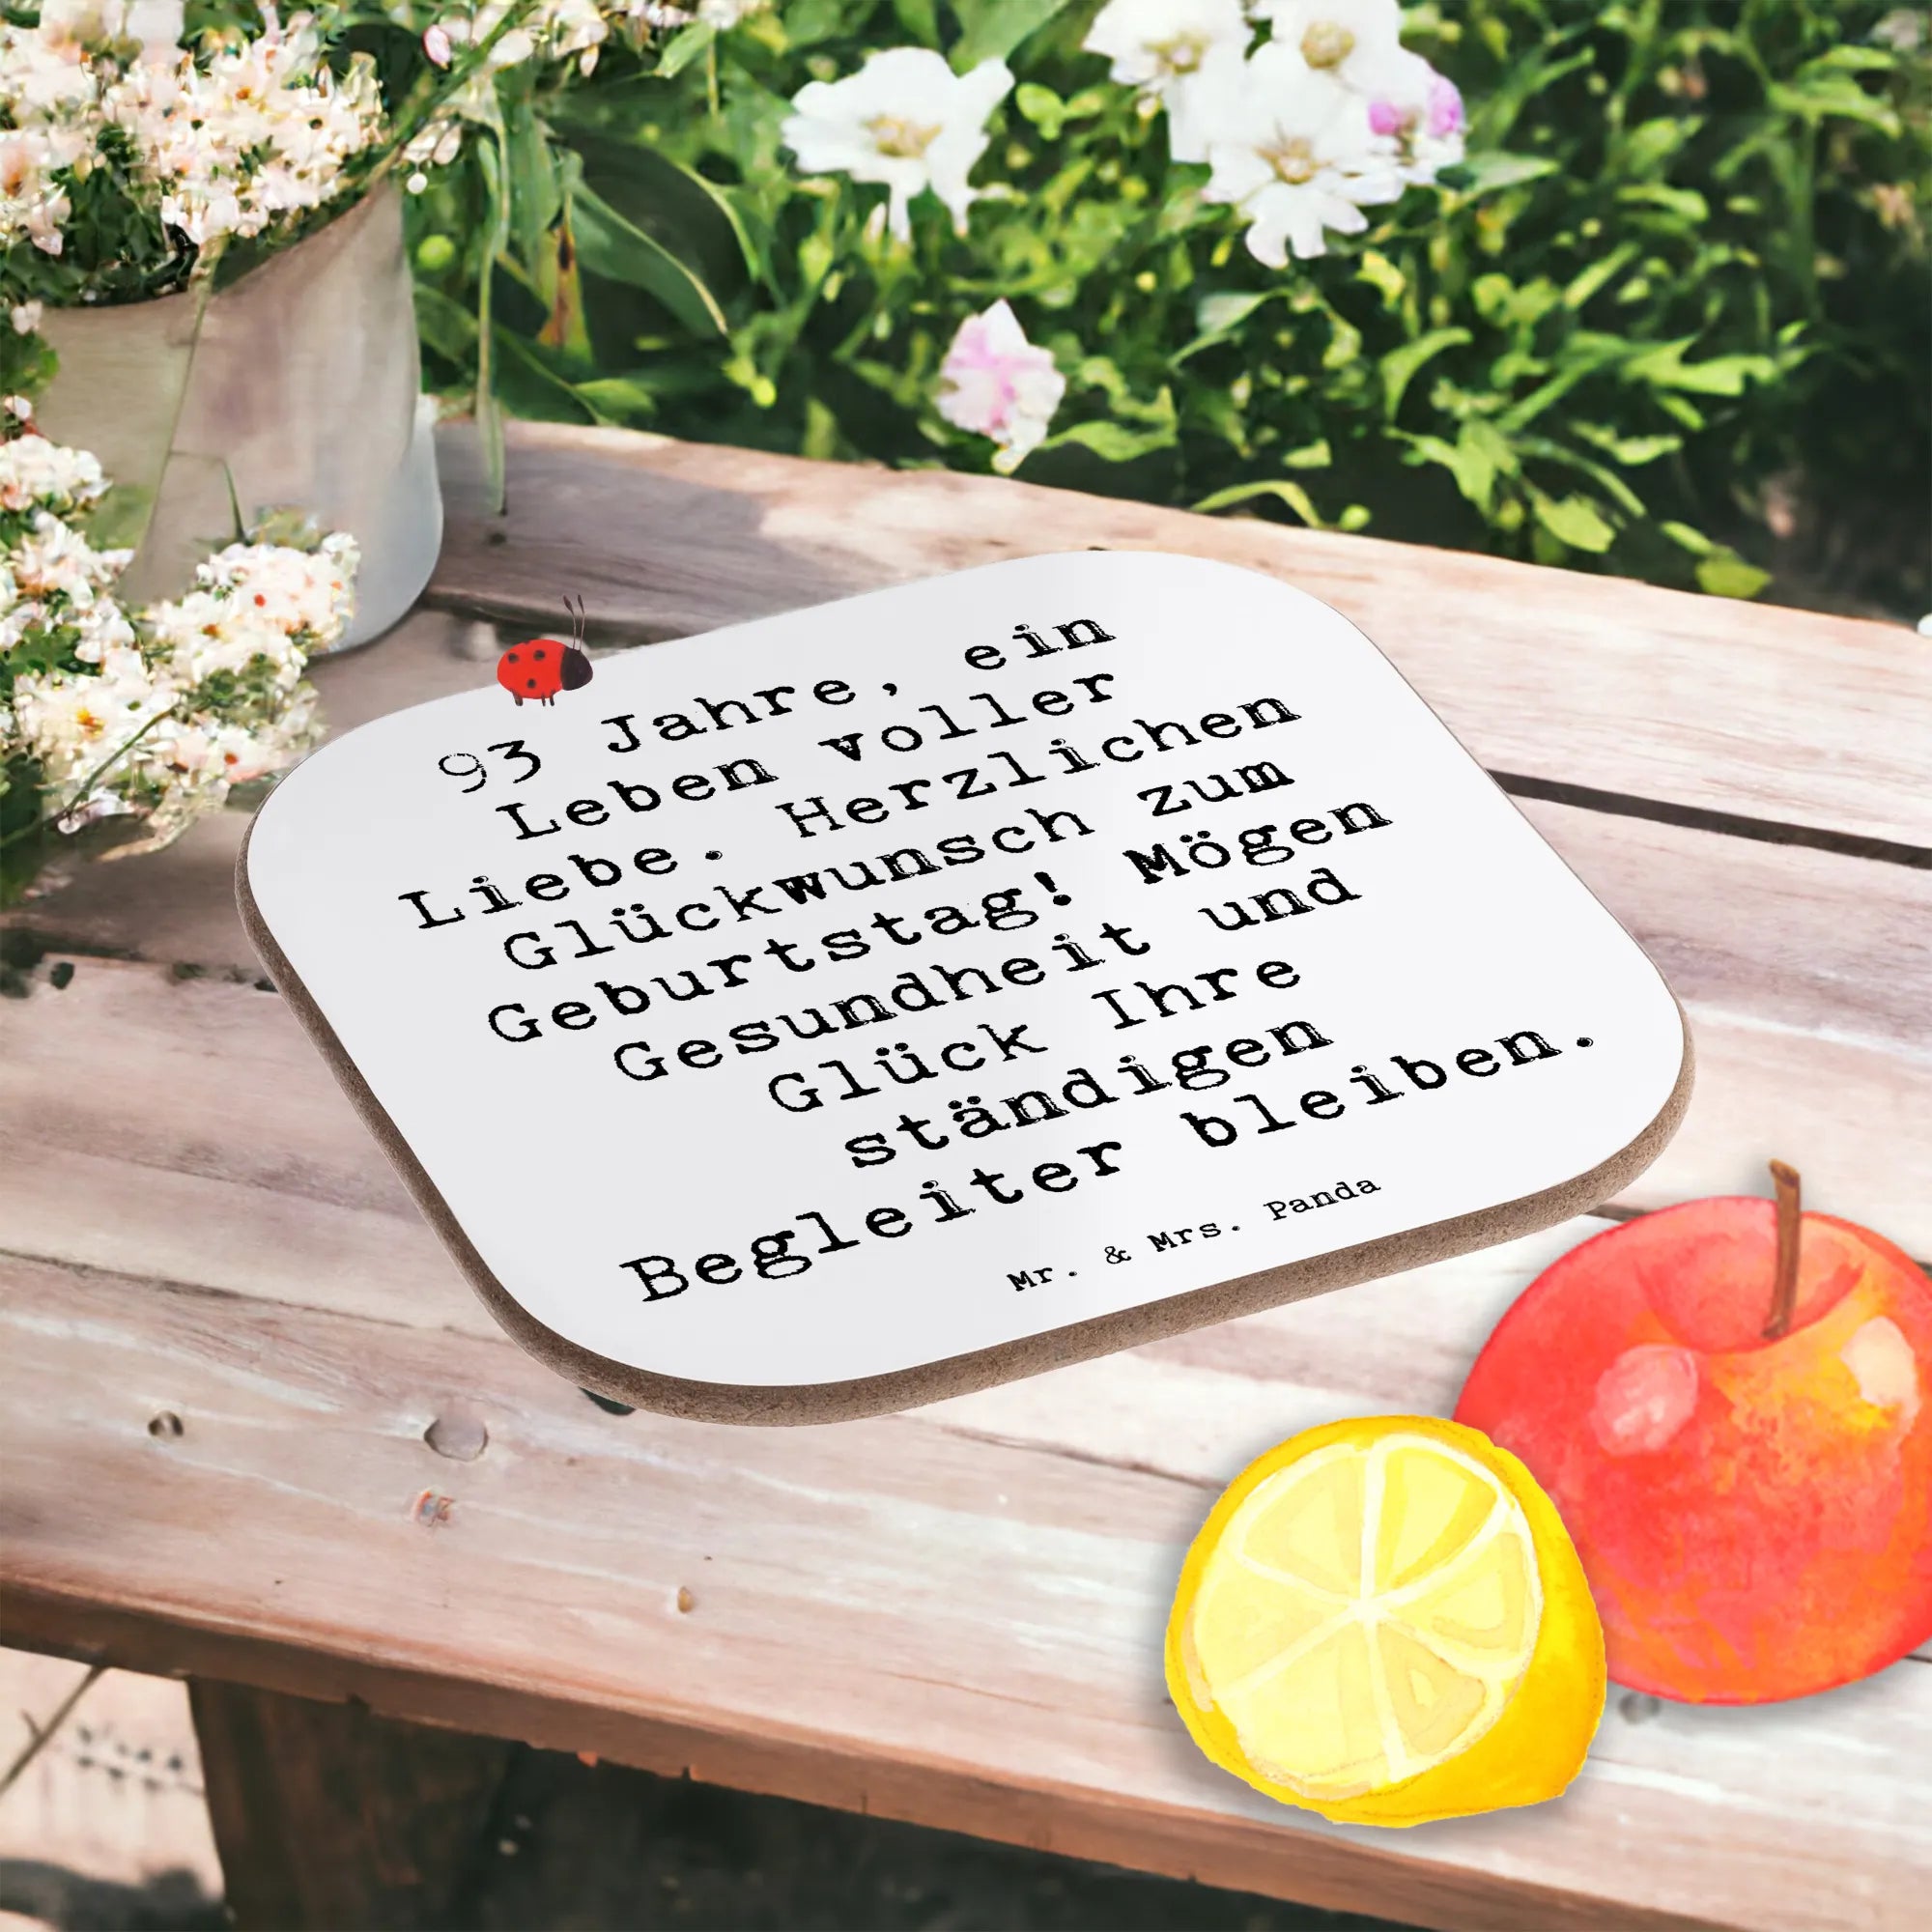 93 Jahre, ein
Leben voller
Liebe. Herzlichen
Glückwunsch zum
Geburtstag! Mögen
Gesundheit und
Glück Ihre
ständigen
Begleiter bleiben.
Mr. & Mrs. Panda